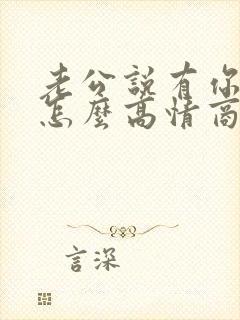 老公說有你
怎麼高情商
言深